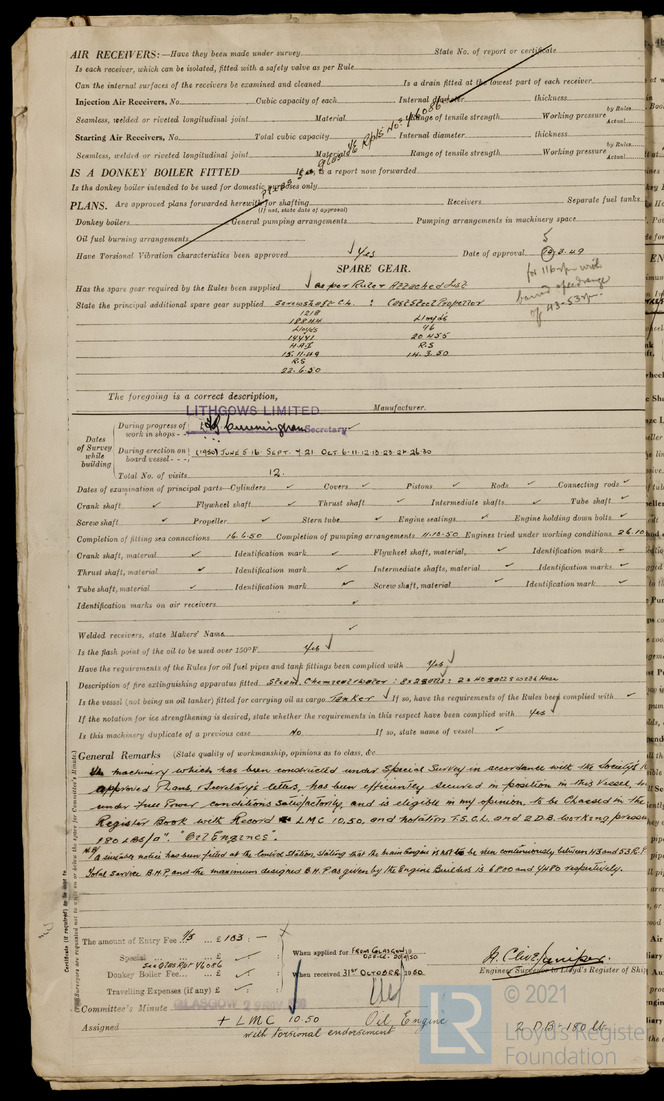 AIR RECEIVERS:—Have they been made under survey State No. of report or certificate
Is each receiver, which can be isolated, fitted with a safety valve as per Rule
Can the internal surfaces of the receivers be examined and cleaned Is a drain fitted at the lowest part of each receiver
Injection Air Receivers, No. Cubic capacity of each Internal diameter thickness
Seamless, welded or riveted longitudinal joint Material Range of tensile strength Working pressure by Rules Actual
Starting Air Receivers, No. Total cubic capacity Internal diameter thickness
Seamless, welded or riveted longitudinal joint Material Range of tensile strength Working pressure by Rules Actual
IS A DONKEY BOILER FITTED If so, is a report now forwarded
Is the donkey boiler intended to be used for domestic purposes only
PLANS. Are approved plans forwarded herewith for shafting Receivers Separate fuel tanks
(If not, state date of approval)
Donkey boilers General pumping arrangements Pumping arrangements in machinery space
Oil fuel burning arrangements
Have Torsional Vibration characteristics been approved Yes Date of approval
for 116 rpm with
barred speed range
of 43-53 rpm.
SPARE GEAR.
Has the spare gear required by the Rules been supplied as per Rule & Attached List
State the principal additional spare gear supplied Screwshaft C.L. : Cast Steel Propellor
1218
Lloyds Lloyds
46
20455
R.S
15.11.49 14.3.50
R.S
22.6.50
The foregoing is a correct description,
LITHGOWS LIMITED Manufacturer.
Cunningham Secretary
Dates of Survey while building
During progress of work in shops - -
During erection on board vessel - - - (1950) JUNE 5. 16. SEPT. 4. 21. OCT. 6. 11. 12. 13. 23. 24. 26. 30
Total No. of visits 12.
Dates of examination of principal parts—Cylinders ✓ Covers ✓ Pistons ✓ Rods ✓ Connecting rods ✓
Crank shaft ✓ Flywheel shaft ✓ Thrust shaft ✓ Intermediate shafts ✓ Tube shaft ✓
Screw shaft ✓ Propeller ✓ Stern tube ✓ Engine seatings ✓ Engine holding down bolts ✓
Completion of fitting sea connections 16.6.50 Completion of pumping arrangements 11.10.50 Engines tried under working conditions 26.10
Crank shaft, material ✓ Identification mark ✓ Flywheel shaft, material ✓ Identification mark ✓
Thrust shaft, material ✓ Identification mark ✓ Intermediate shafts, material ✓ Identification marks ✓
Tube shaft, material ✓ Identification mark ✓ Screw shaft, material ✓ Identification mark ✓
Identification marks on air receivers ✓
Welded receivers, state Makers' Name ✓
Is the flash point of the oil to be used over 150°F. Yes ✓
Have the requirements of the Rules for oil fuel pipes and tank fittings been complied with Yes ✓
Description of fire extinguishing apparatus fitted Steam, Chemical & Water
Is the vessel (not being an oil tanker) fitted for carrying oil as cargo Tanker ✓ If so, have the requirements of the Rules been complied with ✓
If the notation for ice strengthening is desired, state whether the requirements in this respect have been complied with Yes ✓
Is this machinery duplicate of a previous case No If so, state name of vessel ✓
General Remarks (State quality of workmanship, opinions as to class, &c.
machinery which has been constructed under Special Survey in accordance with the Society's
approved Plans, Secretary's letters, has been efficiently secured in position in this Vessel,
under Full Power conditions satisfactorily, and is eligible in my opinion to be Classed in the
Register Book with Record + LMC 10,50, and notation T.S. C.L. and 2 D.B. working pressure
180 LBS/□". "Oil Engines".
N.B. A suitable notice has been fitted at the Control Station, stating that the main Engine is not to be run continuously between 43 and 53 R.P.
Total Service B.H.P. and the maximum designed B.H.P. as given by the Engine Builders is 6800 and 4480 respectively.
The amount of Entry Fee 1/5 ... £ 103 : —
Special ... £
See GLAS RPT 76086
Donkey Boiler Fee... ... £
Travelling Expenses (if any) £
When applied for FROM GLASGOW
When received 31ST OCTOBER 1950
Engineer Surveyor to Lloyd's Register of Ship
Committee's Minute GLASGOW
Assigned + LMC 10.50 Oil Engine 2 D.B. - 180 lb.
with torsional endorsement
Certificate (if required) to be sent to
LR
© 2021
Lloyd's Register
Foundation